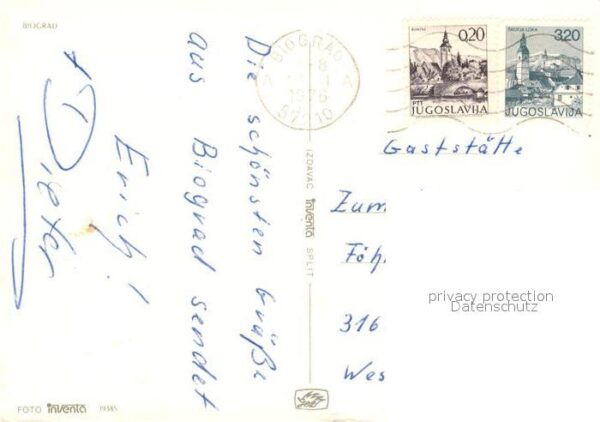 BIOGRAD
Die schönsten Grüße
aus Biograd sendet
Erich!
+ Dieter
FOTO inventa 19385
IZDAVAČ inventa SPLIT
BIOGRAD
1976
57210
0,20
PTT
JUGOSLAVIJA
ŠKOFJA LOKA
3,20
JUGOSLAVIJA
Gaststätte
Zum
Föh
316
Wes
privacy protection
Datenschutz